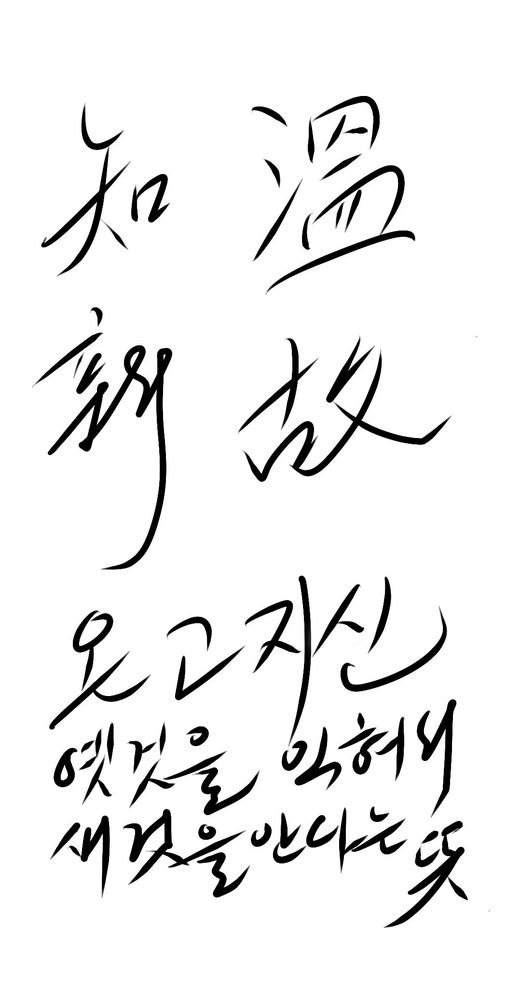 溫故
知新
온고지신
옛것을 익혀서
새것을안다는 뜻